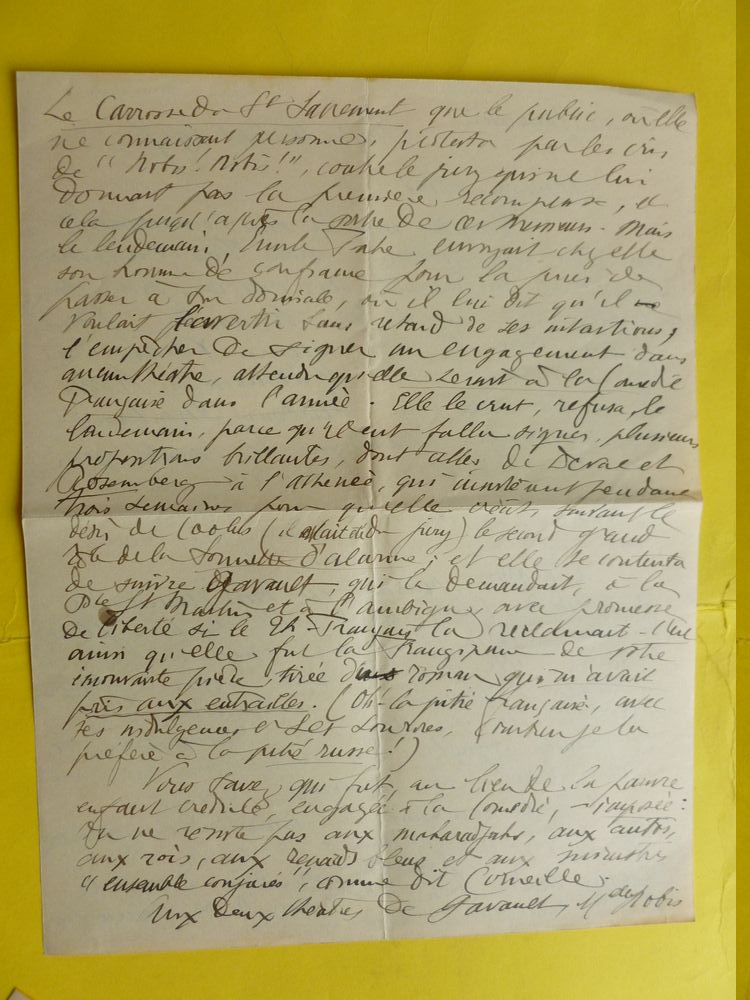 Le Carrosse du St Sacrement que le public, où elle
ne connaissait personne, protesta par les cris
de " Robis! Robis!", contre le jury qui ne lui
donnait pas la première récompense, et
cela jusqu'après la sortie de ces Messieurs. Mais
le lendemain, Emile Fabre envoyait chez elle
son homme de confiance pour la prier de
passer à son domicile, où il lui dit qu'il
voulait l'avertir sans retard de ses intentions,
l'empêcher de signer un engagement dans
aucun théâtre, attendu qu'elle serait à la Comédie
Française dans l'année. Elle le crut, refusa, le
lendemain, parce qu'il eut fallu signer, plusieurs
propositions brillantes, dont celles de Deval et
Rosemberg à l'athénée, qui insistèrent pendant
trois semaines pour qu'elle créât, suivant le
désir de Coolus (il était du jury) le second grand
rôle de la Sonnette d'alarme; et elle se contenta
de suivre Gavault, qui la demandait, à la
Pte St Martin et à l'ambigu, avec promesse
de liberté si le Th-Français la réclamait. C'est
ainsi qu'elle fut la de votre
émouvante pièce, tirée du roman qui m'avait
pris aux entrailles. (Oh! la pitié française, avec
ses indulgences et ses sourires, combien je la
préfère à la pitié russe!)
Vous savez qui fut, au lieu de la pauvre
enfant crédule, engagée à la Comédie, - imposée:
On ne résiste pas aux maharadjahs, aux autos,
aux rois, aux regards bleus et aux ministres
"ensemble conjurés", comme dit Corneille.
Aux deux théâtres de Gavault, Mlle Robis